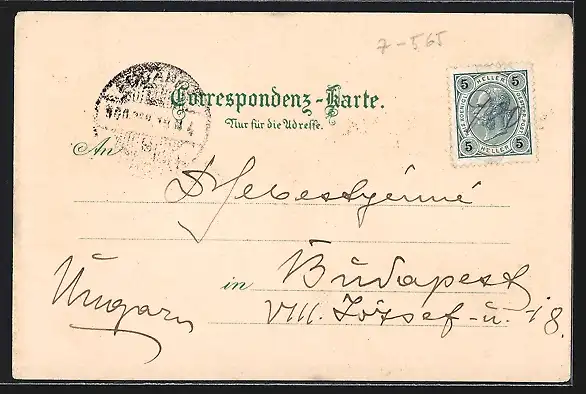 7-565
Correspondenz-Karte.
Nur für die Adresse.
5 HELLER 5
5 HELLER 5
An
Sebestyénné
in Budapest
Ungarn
VIII. József-u. 18.